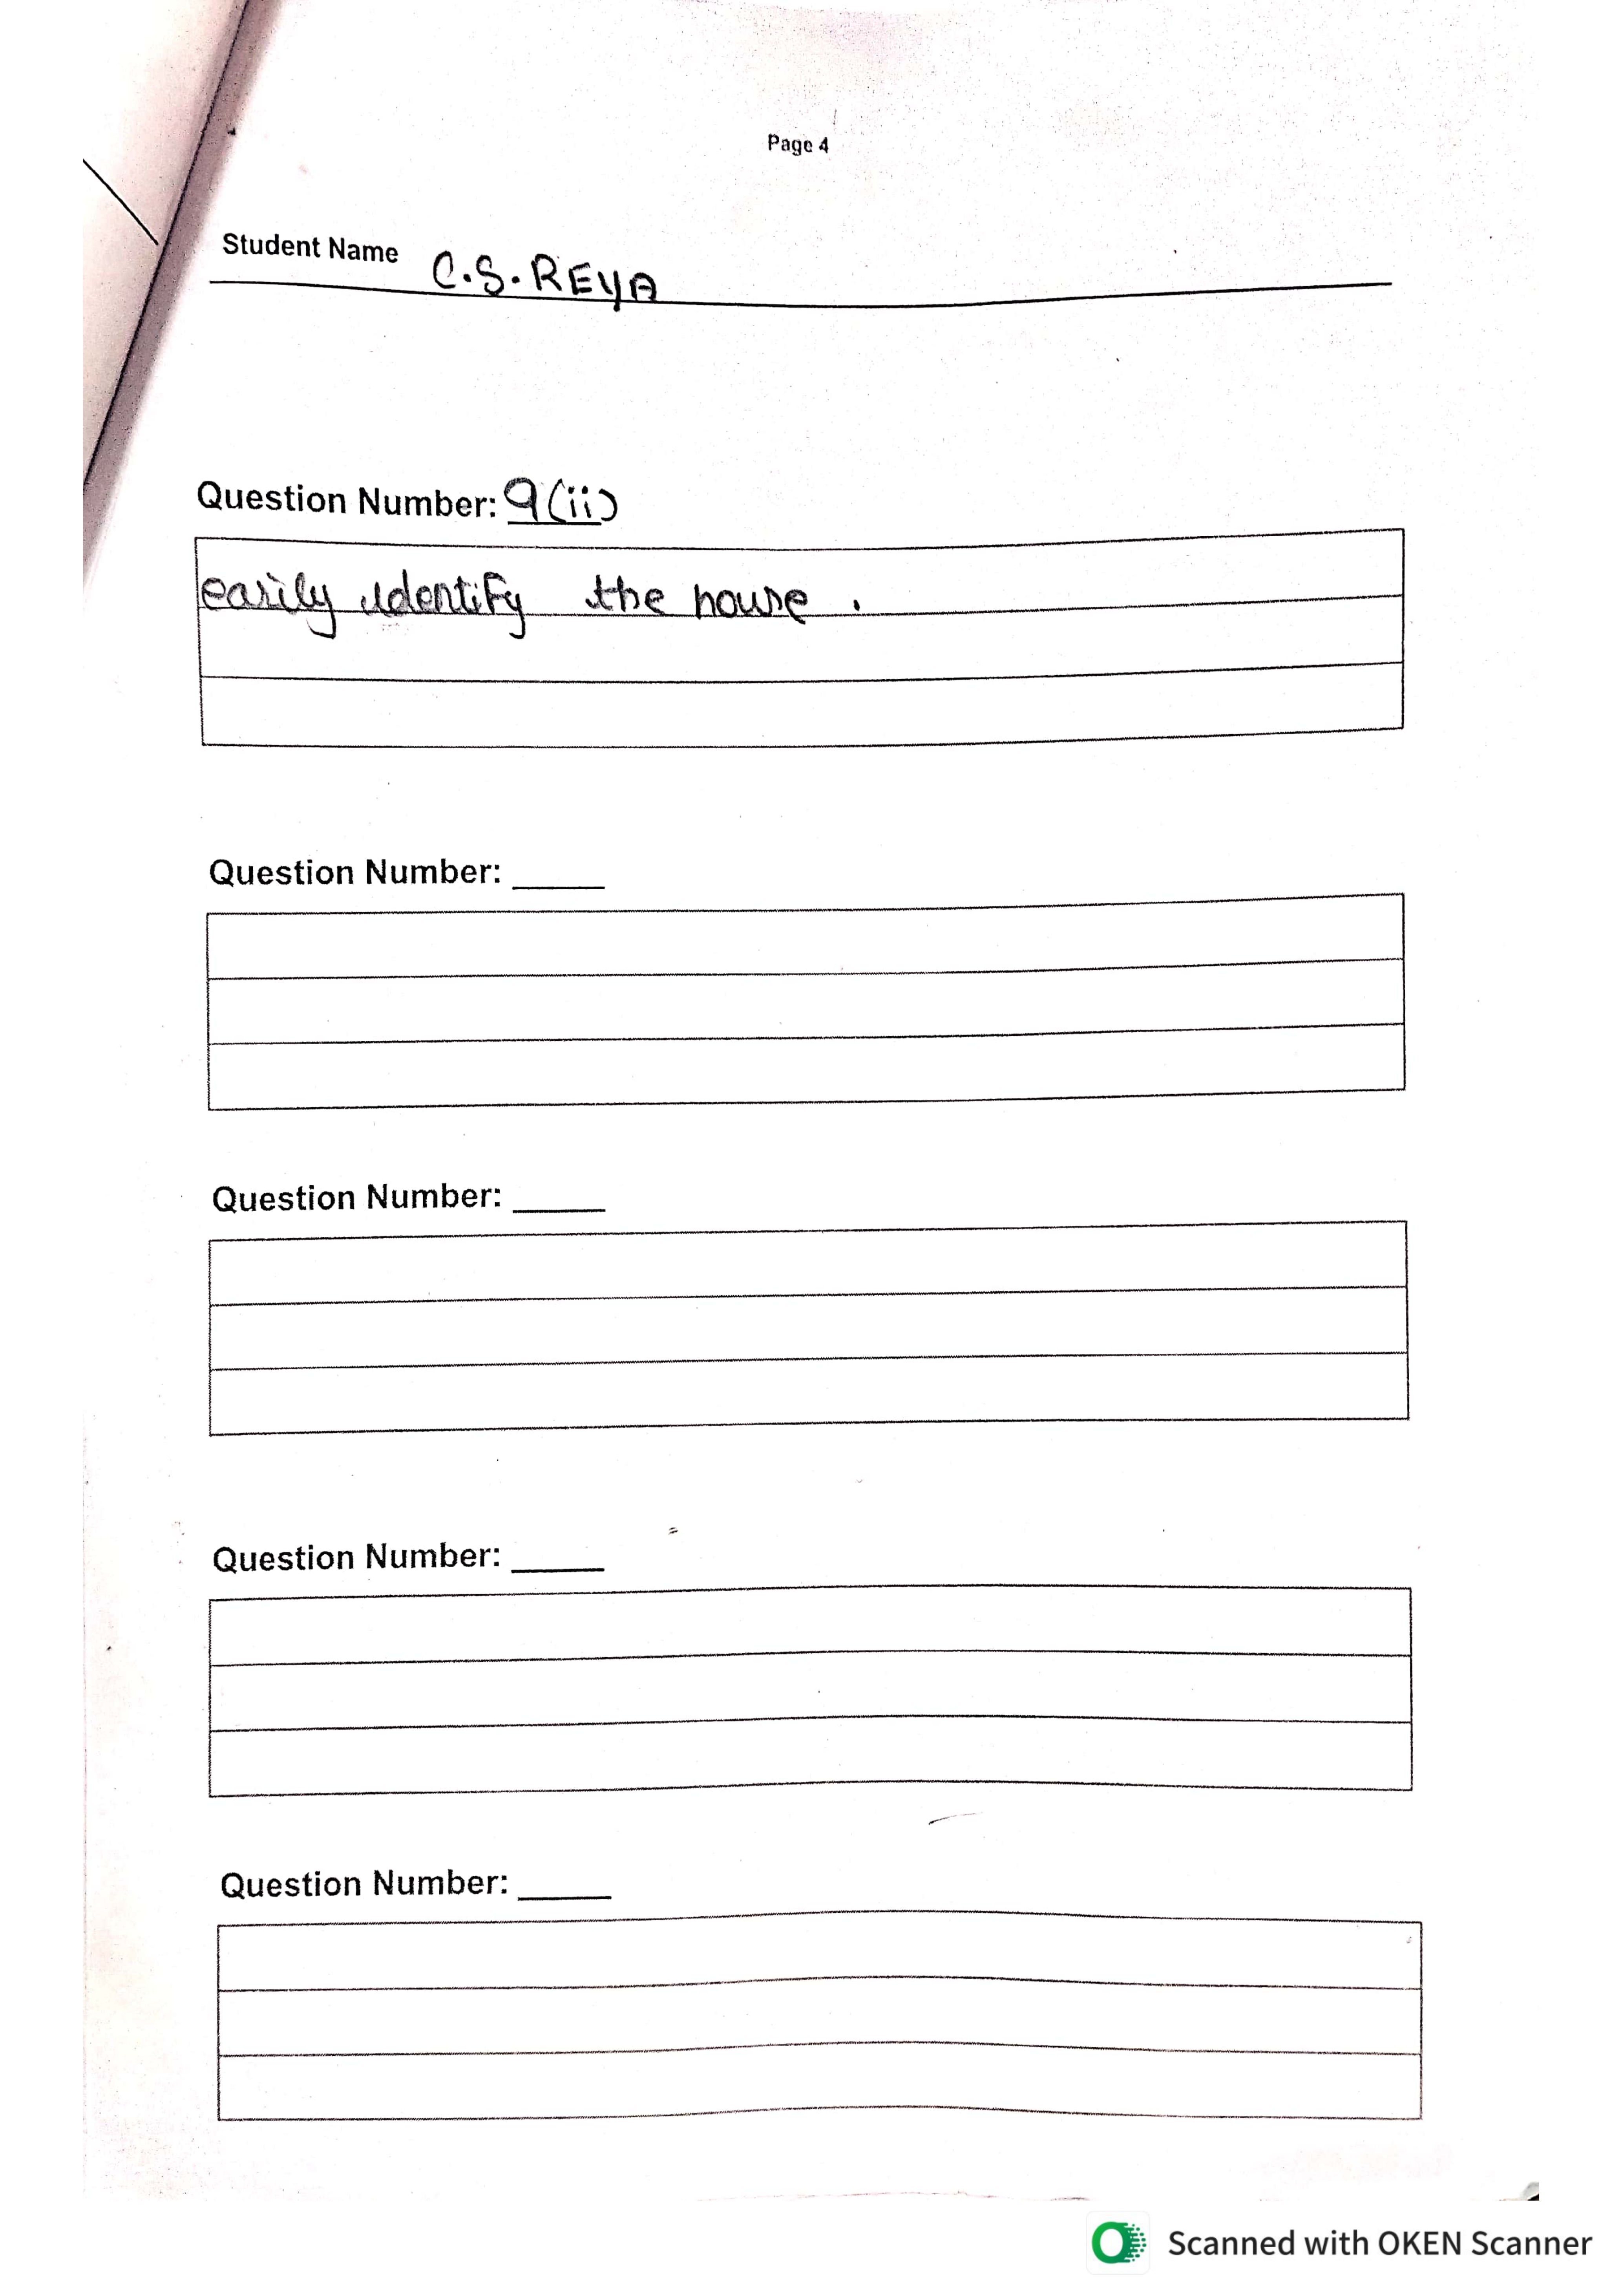 Page 4
Student Name C.S.REYA
Question Number: 9(ii)
easily identify the house .
Question Number: _____
Question Number: _____
Question Number: _____
Question Number: _____
Scanned with OKEN Scanner